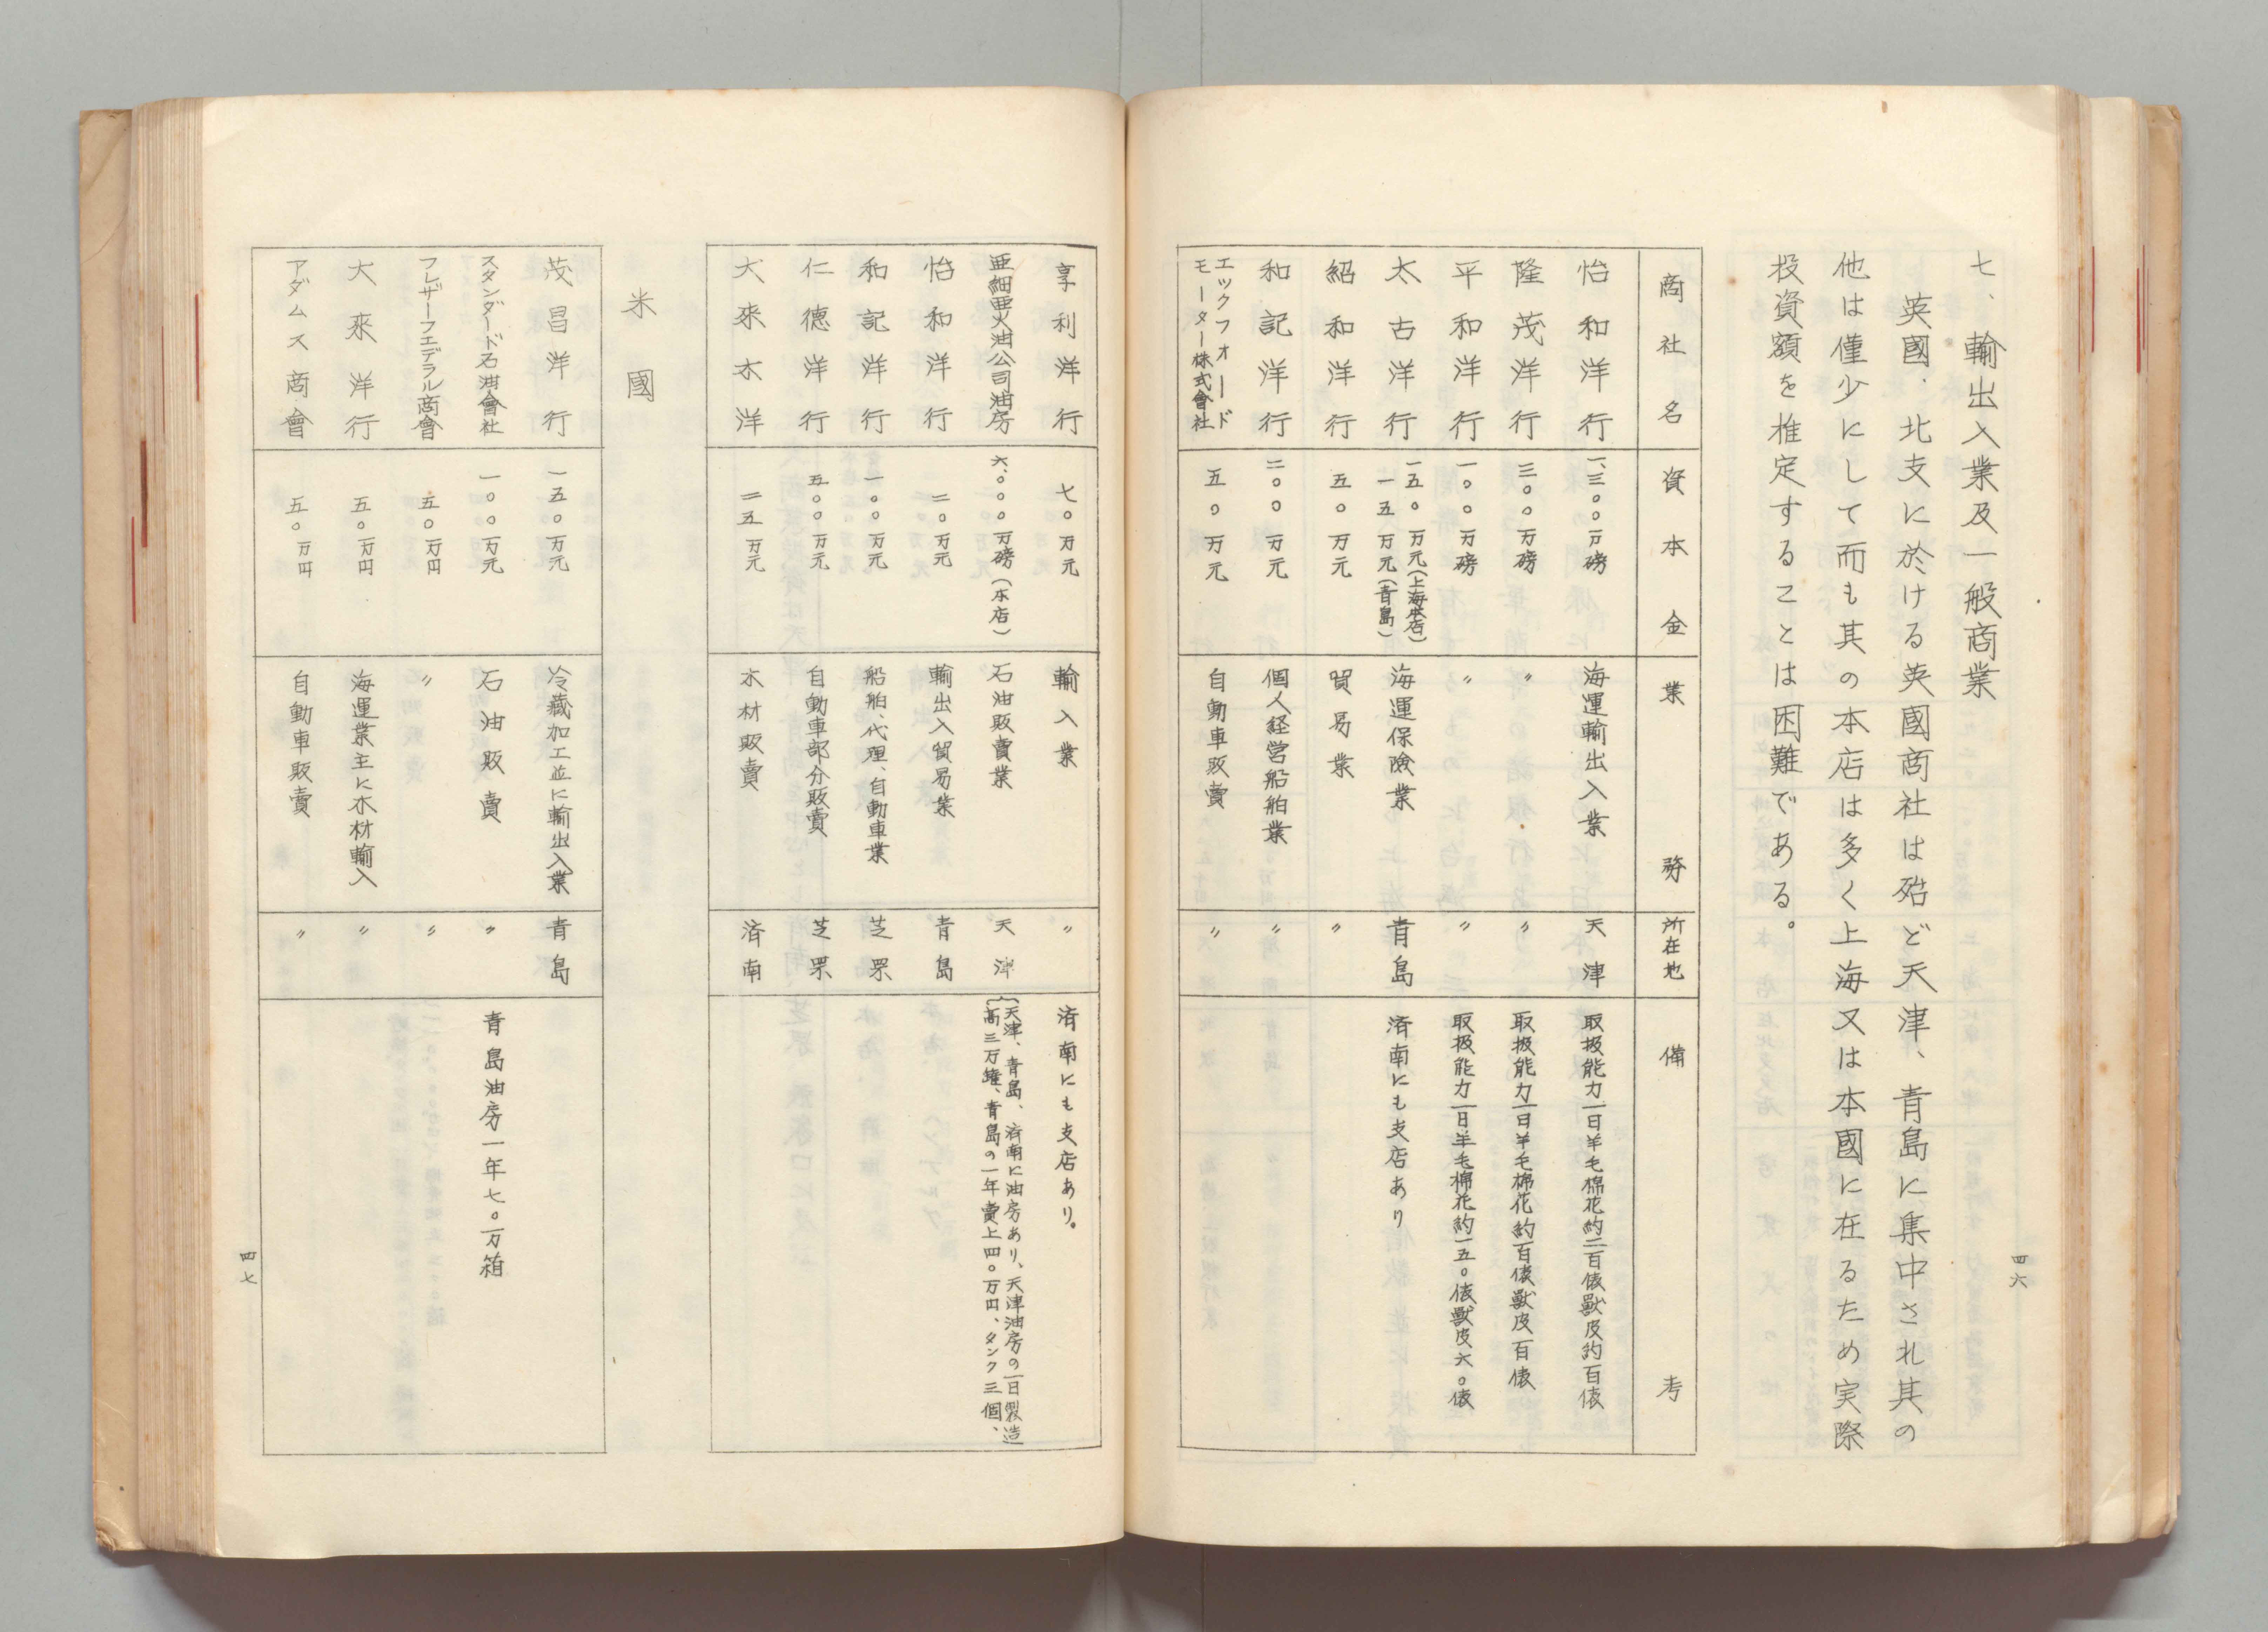 七、輸出入業及一般商業
英國、北支に於ける英國商社は殆ど天津、青島に集中され其の
他は僅少にして而も其の本店は多く上海又は本國に在るため実際
投資額を推定することは困難である。
商社名 資本金 業務 所在地 備考
怡和洋行 一、三〇〇万磅 海運輸出入業 天津 取扱能力一日羊毛棉花約二百俵獣皮約百俵
隆茂洋行 三〇〇万磅 〃 〃 取扱能力一日羊毛棉花約百俵獣皮百俵
平和洋行 一〇〇万磅 〃 〃 取扱能力一日羊毛棉花約一五〇俵獣皮六〇俵
太古洋行 一五〇万元(上海本店)
一五万元(青島) 海運保険業 青島 済南にも支店あり
紹和洋行 五〇万元 貿易業 〃
和記洋行 二〇〇万元 個人経営船舶業 〃
エックフォード
モーター株式會社 五〇万元 自動車販賣 〃
四六
享利洋行 七〇万元 輸入業 〃 済南にも支店あり。
亜細亜火油公司油房 六、〇〇〇万磅(本店) 石油販賣業 天津 天津、青島、済南に油房あり、天津油房の一日製造
高三万罐、青島の一年賣上四〇万円、タンク三個、
怡和洋行 二〇万元 輸出入貿易業 青島
和記洋行 一〇〇万元 船舶、代理、自動車業 芝罘
仁德洋行 五〇〇万元 自動車部分販賣 芝罘
大來木洋 二五万元 木材販賣 済南
米國
茂昌洋行 一五〇万元 冷藏加工並に輸出入業 青島
スタンダード石油會社 一〇〇万元 石油販賣 〃 青島油房一年七〇万箱
フレザーフエデラル商會 五〇万円 〃 〃
大來洋行 五〇万円 海運業主に木材輸入 〃
アダムス商會 五〇万円 自動車販賣 〃
四七